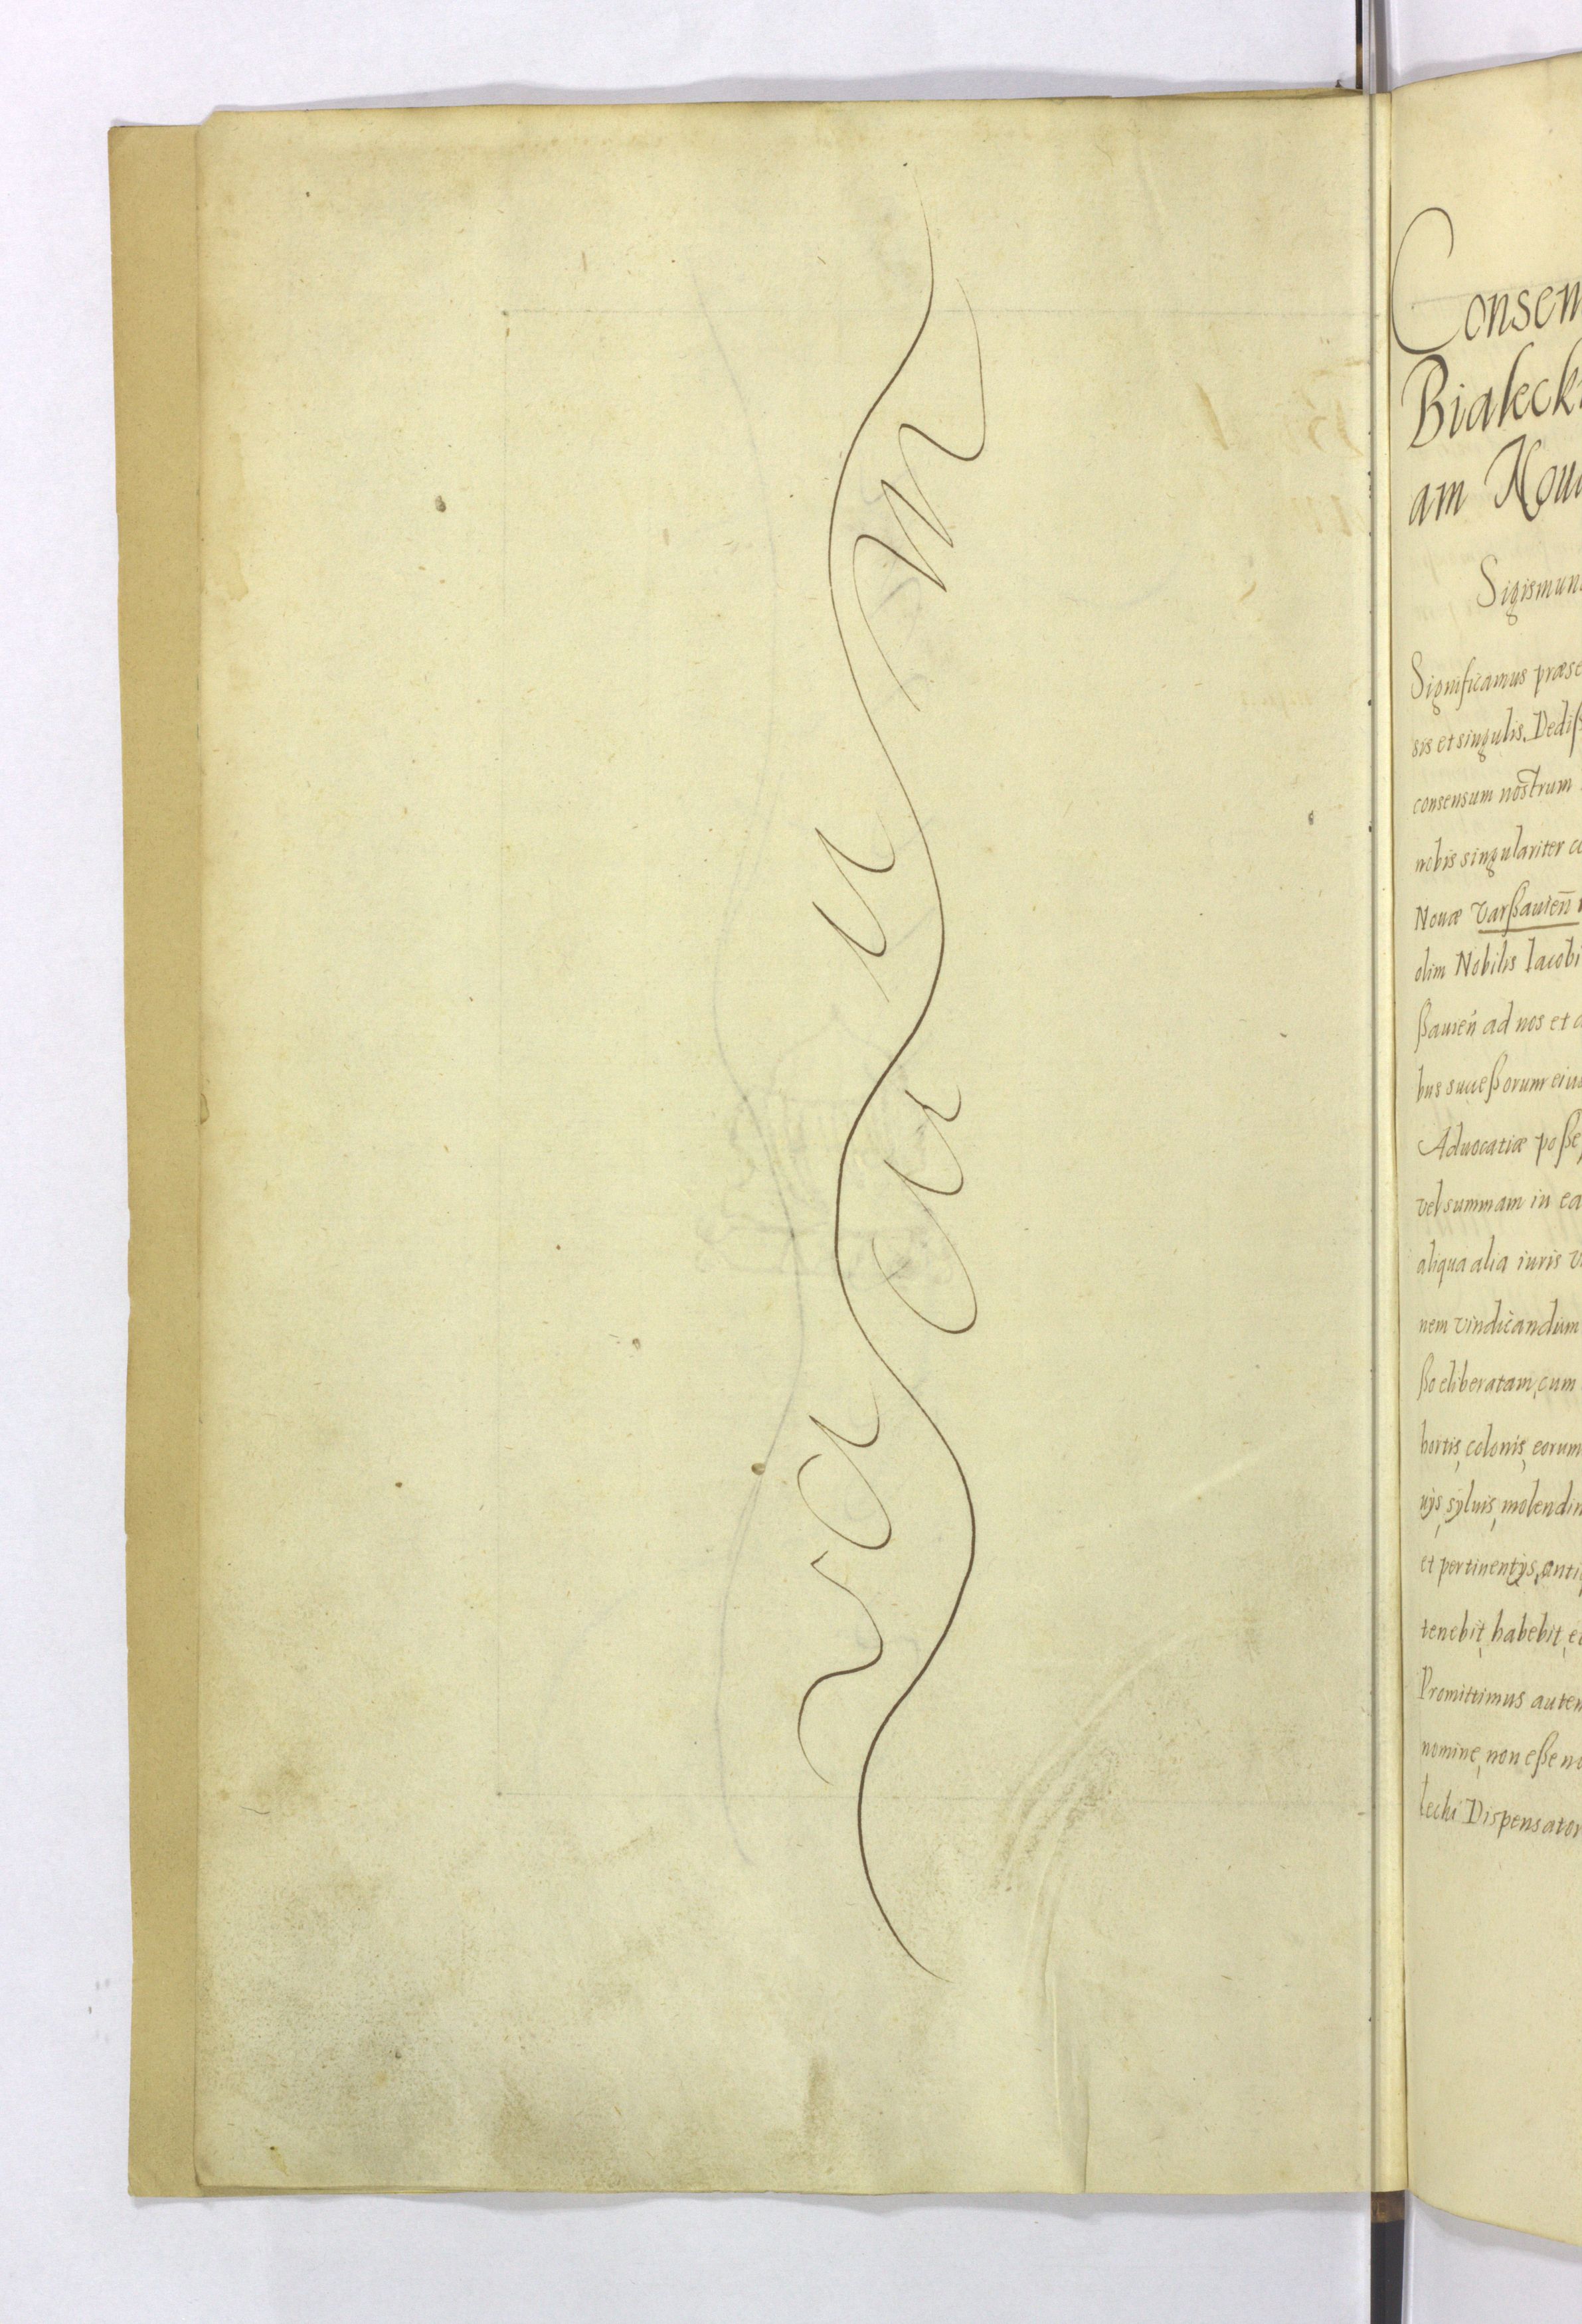 vacuum
Consen
Bialeck
am Nou
Sigismun
Significamus præse
sis et singulis. Dediß
consensum nostrum
nobis singulariter co
Nouæ Varßauien̄
olim Nobilis Iacobi
ßauien̄ ad nos et
bus succeßorum eius
Aduocatiæ poße
vel summam in ea
aliqua alia iuris
nem vindicandum
ßo eliberatam, cum
hortis, colonis, eorum
uijs, syluis, molendin
et pertinentijs, anti
tenebit, habebit, et
Promittimus autem
nomine, non eße no
lecki Dispensator